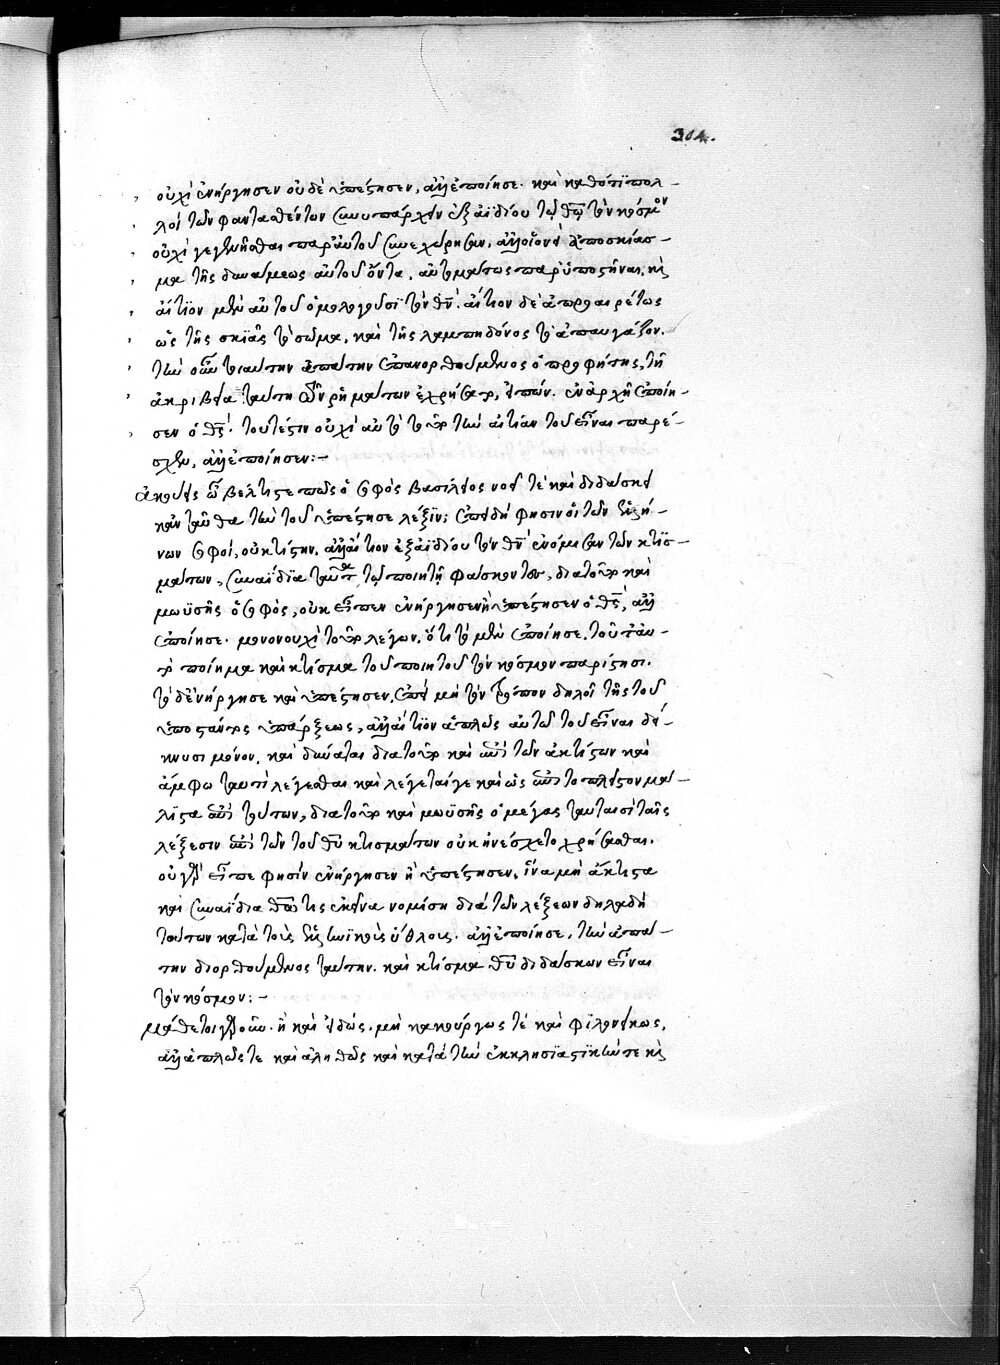 304.
οὐχὶ ἐνήργησεν οὐδὲ ὑπέστησεν, ἀλλ' ἐποίησε. καὶ καθότι πολ-
λοὶ τῶν φαντασθέντων συνυπάρχειν ἐξ ἀϊδίου τῷ θῷ τὸν κόσμον
οὐχὶ γεγενῆσθαι παρ' αὐτοῦ συνεχώρησαν, ἀλλ' οἱονεὶ ἀποσκίασ-
μα τῆς δυνάμεως αὐτοῦ ὄντα, αὐτομάτως παρυποστῆναι, καὶ
αἴτιον μὲν αὐτοῦ ὁμολογοῦσι τὸν θν. αἴτιον δὲ ἀπροαιρέτως
ὡς τῆς σκιᾶς τὸ σῶμα, καὶ τῆς λαμπηδόνος τὸ ἀπαυγάζον.
τὴν οὖν τοιαύτην ἀπάτην ἐπανορθούμενος ὁ προφήτης, τῇ
ἀκριβείᾳ ταύτῃ τῶν ῥημάτων ἐχρήσατο, εἰπών. ἐν ἀρχῇ ἐποίη-
σεν ὁ θς. τουτέστιν οὐχὶ αὐτὸ τοῦτο τὴν αἰτίαν τοῦ εἶναι παρέ-
σχεν, ἀλλ' ἐποίησεν:-
ἀκούεις ὦ βέλτιστε πῶς ὁ σοφὸς βασίλειος νοεῖ τὲ καὶ διδάσκει
κἀνταῦθα τὴν τοῦ ὑπέστησε λέξιν; ἐπειδή φησιν οἱ τῶν ἑλλή-
νων σοφοί, οὐ κτίστην, ἀλλ' αἴτιον ἐξ ἀϊδίου τὸν θν ἐνόμισαν τῶν κτισ-
μάτων, συναΐδια ταῦτα τῷ ποιητῇ φάσκοντες, διὰ τοῦτο καὶ
μωϋσῆς ὁ σοφός, οὐκ εἶπεν ἐνήργησεν ἢ ὑπέστησεν ὁ θς, ἀλλ'
ἐποίησε. μονονουχὶ τοῦτο λέγων, ὅτι τὸ μὲν ἐποίησε, τοῦ παν-
τὸς ποίημα καὶ κτίσμα τοῦ ποιητοῦ τὸν κόσμον παρίστησι.
τὸ δὲ ἐνήργησε καὶ ὑπέστησεν, ἐπεὶ μὴ τὸν τρόπον δηλοῖ τῆς τοῦ
ὑποστάντος ὑπάρξεως, ἀλλ' αἴτιον ἁπλῶς αὐτῷ τοῦ εἶναι δεί-
κνυσι μόνον, καὶ δύναται διὰ τοῦτο καὶ ἐπὶ τῶν ἀκτίστων καὶ
ἄμφω ταυτὶ λέγεσθαι καὶ λέγεταί γε καὶ ὡς ἐπὶ τὸ πλεῖστον μά-
λιστα ἐπὶ τούτων, διὰ τοῦτο καὶ μωϋσῆς ὁ μέγας ταύταισὶ ταῖς
λέξεσιν ἐπὶ τῶν τοῦ θυ κτισμάτων οὐκ ἠνέσχετο χρήσασθαι.
οὐ γὰρ εἶπε φησὶν ἐνήργησεν ἢ ὑπέστησεν, ἵνα μὴ ἄκτιστα
καὶ συναΐδια θῷ τις ἐκεῖνα νομίσῃ διὰ τῶν λέξεων δηλαδὴ
τούτων κατὰ τοὺς ἑλληνικοὺς ὕθλους. ἀλλ' ἐποίησε, τὴν ἀπά-
την διορθούμενος ταύτην. καὶ κτίσμα θυ διδάσκων εἶναι
τὸν κόσμον:-
μάθετοι γὰρ οὖν. ἢ καὶ εἰδώς. μὴ κακούργως τὲ καὶ φιλονείκως,
ἀλλ' ἁπλῶς τε καὶ ἀληθῶς καὶ κατὰ τὴν ἐκκλησιαστικὴν τε καὶ